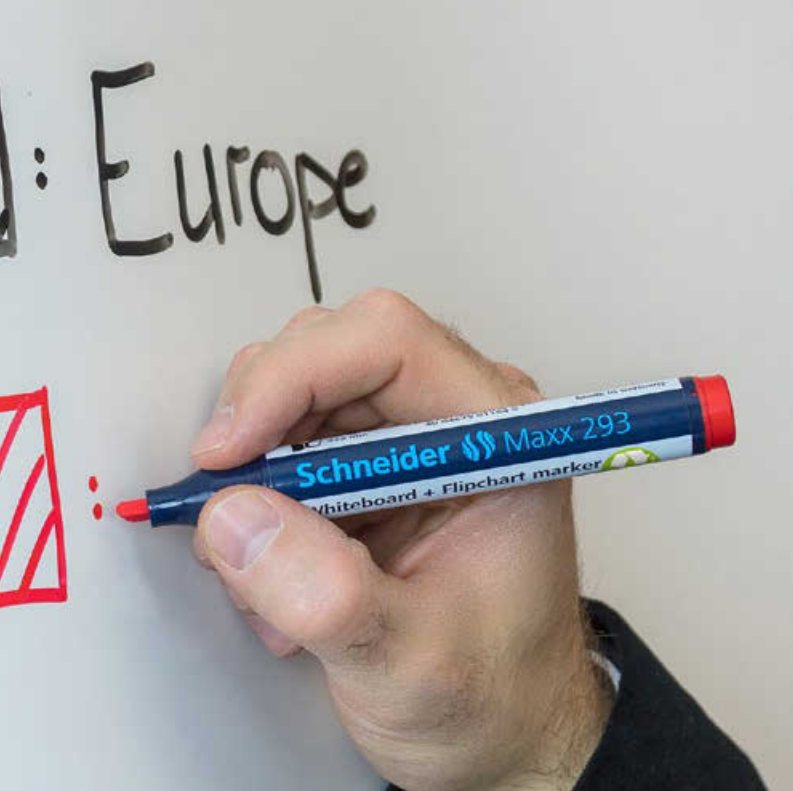 : Europe
:
Schneider Maxx 293
Whiteboard + Flipchart marker